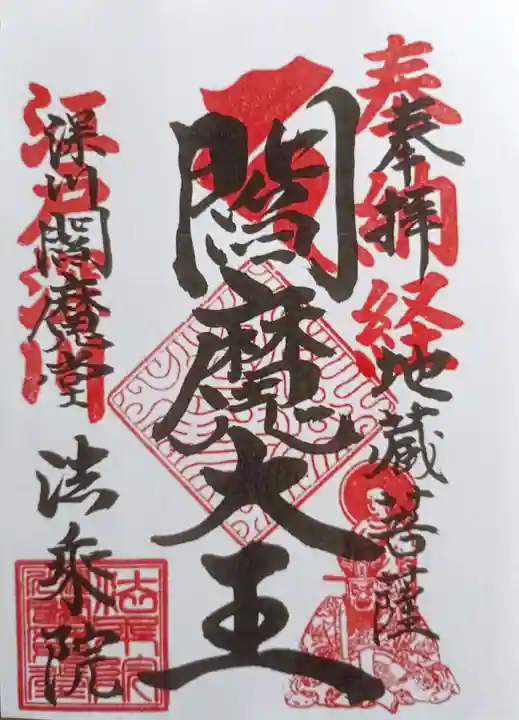 奉拝 地蔵菩薩
奉納経
閻魔大王
深川閻魔堂 法乗院